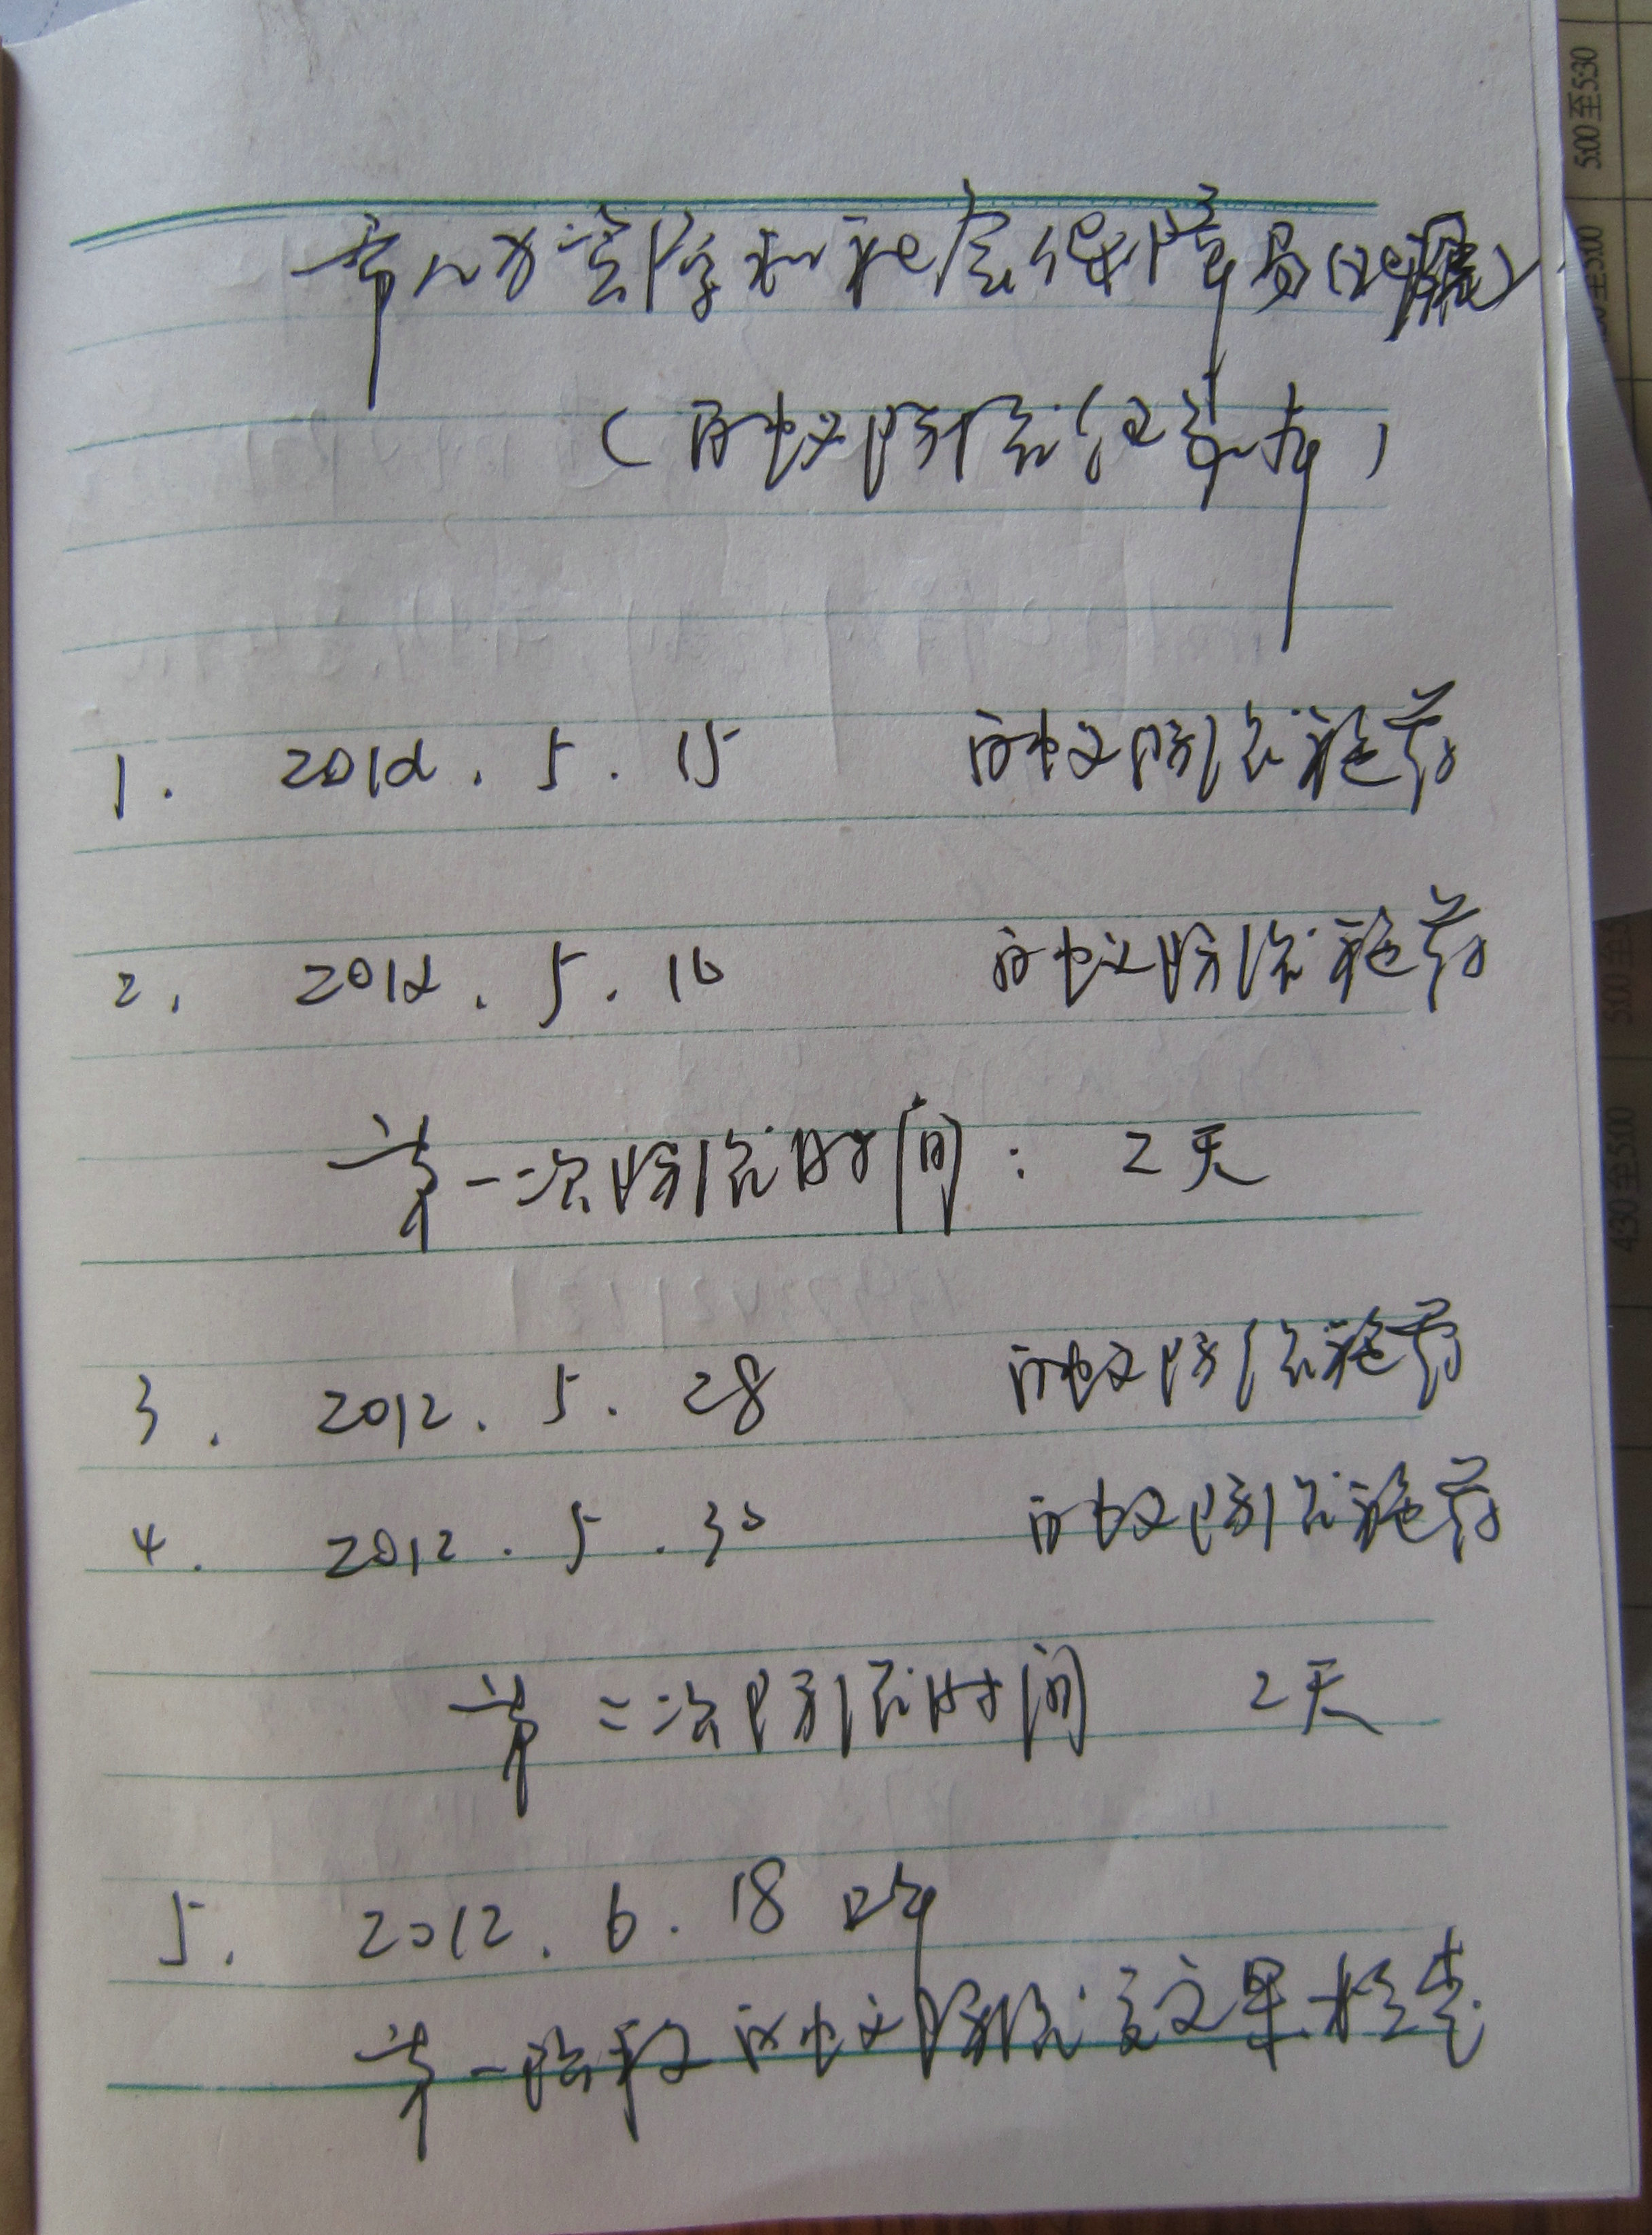 市人力资源和社会保障局
(白蚁防治记录本)
1. 2012. 5. 15 白蚁防治施药
2. 2012. 5. 16 白蚁防治施药
第一次防治时间: 2天
3. 2012. 5. 28 白蚁防治施药
4. 2012. 5. 30 白蚁防治施药
第二次防治时间 2天
5. 2012. 6. 18
第一阶段白蚁防治效果检查
5:00至5:30
至5:00
4:30至5:00